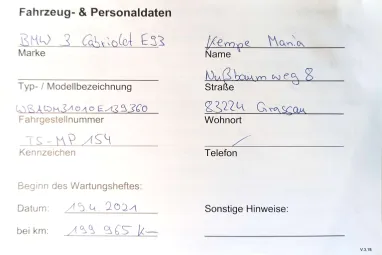 Fahrzeug- & Personaldaten
BMW 3 Cabriolet E93
Marke
Typ- / Modellbezeichnung
WBADM31010E139360
Fahrgestellnummer
TS-MP 154
Kennzeichen
Beginn des Wartungsheftes:
Datum: 19.4.2021
bei km: 199 965 km
Kempe Maria
Name
Nußbaumweg 8
Straße
83224 Grassau
Wohnort
Telefon
Sonstige Hinweise: